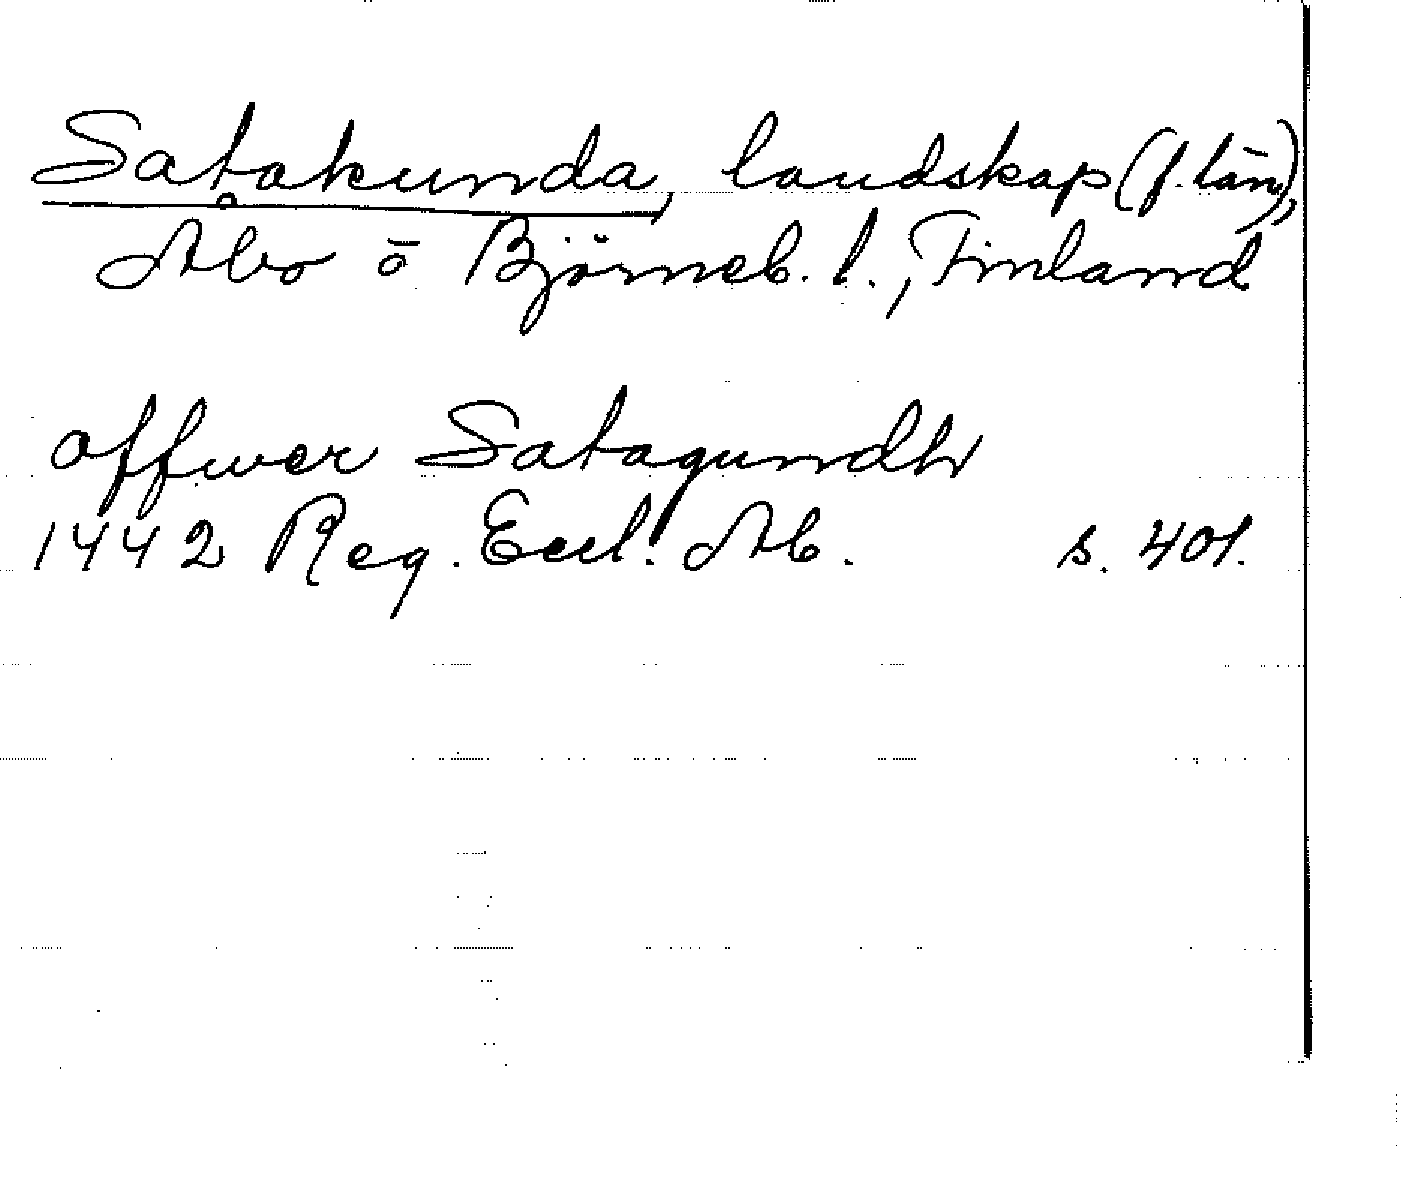 Satakunda, landskap (f. län),
Åbo ō Björneb. l., Finland
offwer Satagundh
1442 Reg. Eccl. Ab. s. 401.